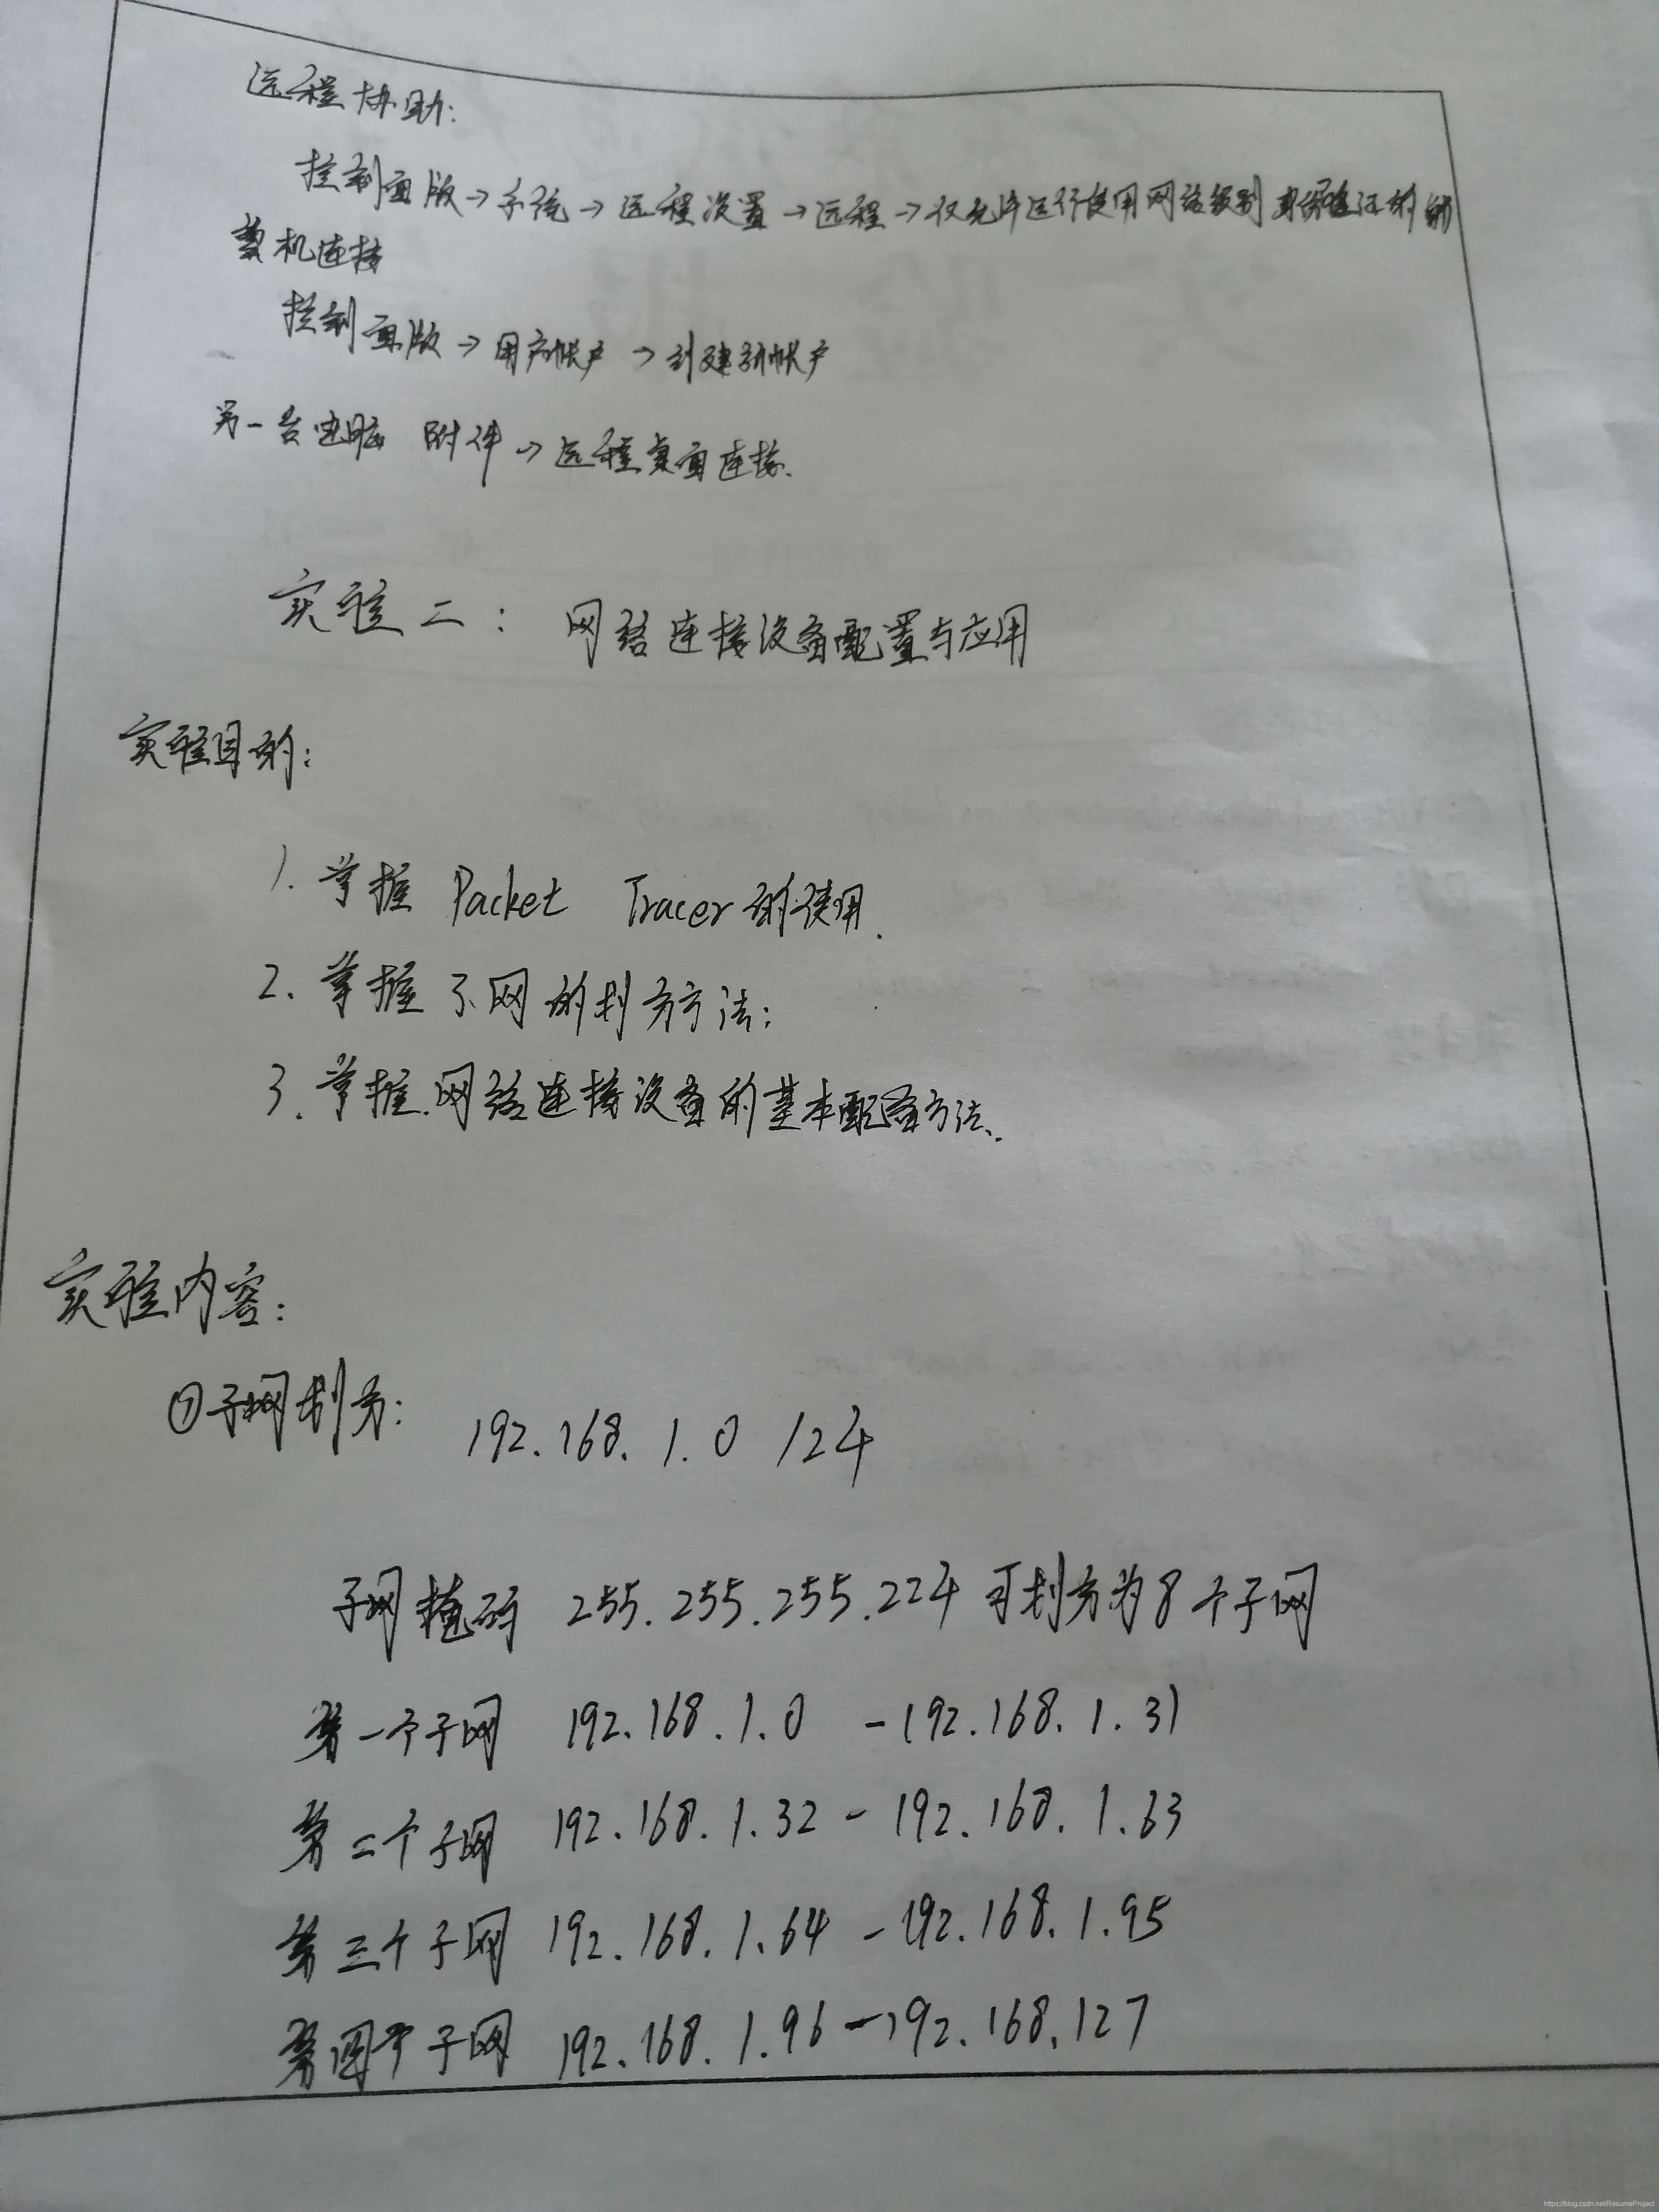 远程协助:
控制面版→系统→远程设置→远程→仅允许运行使用网络级别身份验证的
算机连接
控制面版→用户帐户→创建新帐户
另一台电脑 附件→远程桌面连接.
实验二: 网络连接设备配置与应用
实验目的:
1. 掌握 Packet Tracer的使用.
2. 掌握子网的划分方法;
3. 掌握网络连接设备的基本配置方法.
实验内容:
①子网划分: 192.168.1.0 /24
子网掩码 255.255.255.224 可划分为8个子网
第一个子网 192.168.1.0 -192.168.1.31
第二个子网 192.168.1.32 - 192.168.1.63
第三个子网 192.168.1.64 -192.168.1.95
第四个子网 192.168.1.96 -192.168.127
https://blog.csdn.net/ResumeProject